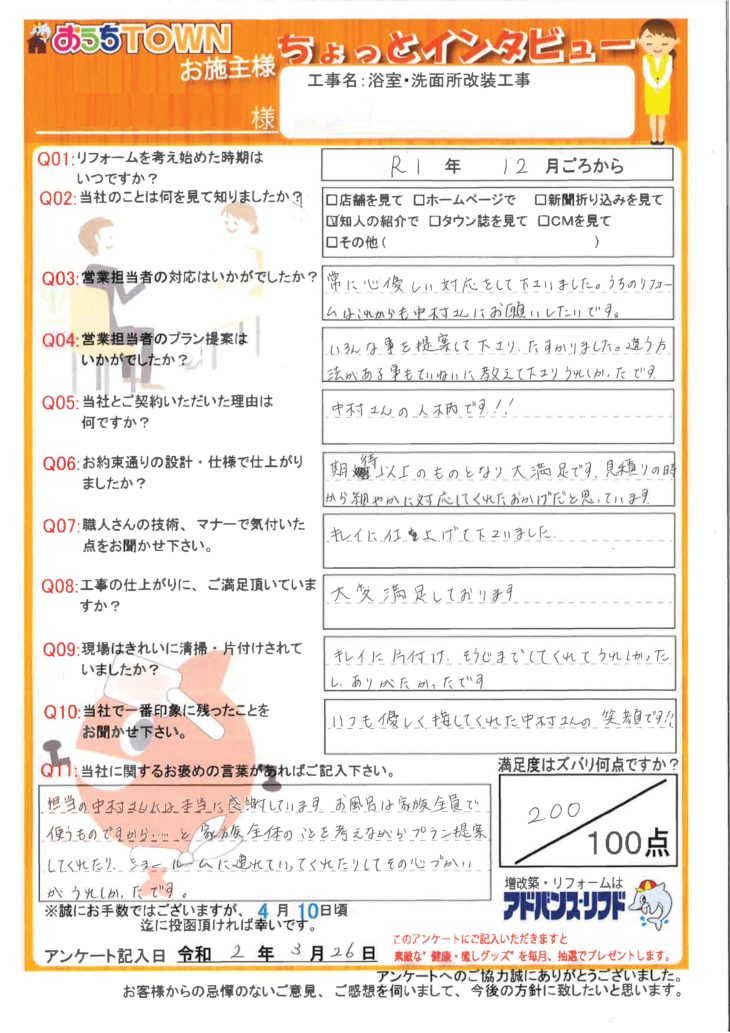 おうちTOWN
お施主様
ちょっとインタビュー
工事名:浴室・洗面所改装工事
様
Q01:リフォームを考え始めた時期は
いつですか?
R1 年 12 月ごろから
Q02:当社のことは何を見て知りましたか?
□店舗を見て □ホームページで □新聞折り込みを見て
☑知人の紹介で □タウン誌を見て □CMを見て
□その他( )
Q03:営業担当者の対応はいかがでしたか?
常に心優しい対応をして下さいました。うちのリフォー
ムはこれからも中村さんにお願いしたいです。
Q04:営業担当者のプラン提案は
いかがでしたか?
いろんな事を提案して下さり、たすかりました。違う方
法がある事もていねいに教えて下さりうれしかったです
Q05:当社とご契約いただいた理由は
何ですか?
中村さんの人柄です!!
Q06:お約束通りの設計・仕様で仕上がり
ましたか?
期待以上のものとなり大満足です。見積りの時
から細やかに対応してくれたおかげだと思っています
Q07:職人さんの技術、マナーで気付いた
点をお聞かせ下さい。
キレイに仕上げて下さいました
Q08:工事の仕上がりに、ご満足頂いていま
すか?
大変満足しております
Q09:現場はきれいに清掃・片付けされて
いましたか?
キレイに片付け、そうじまでしてくれてうれしかった
し、ありがたかったです
Q10:当社で一番印象に残ったことを
お聞かせ下さい。
いつも優しく接してくれた中村さんの笑顔です!!
Q11:当社に関するお褒めの言葉があればご記入下さい。
担当の中村さんには本当に感謝しています。お風呂は家族全員で
使うものですから……と家族全体のことを考えながらプラン提案
してくれたり、ショールームに連れていってくれたりしてその心づかい
がうれしかったです。
満足度はズバリ何点ですか?
200
100点
増改築・リフォームは
アドバンス・リフド
※誠にお手数ではございますが、4月10日頃
迄に投函頂ければ幸いです。
アンケート記入日 令和 2 年 3 月 26 日
このアンケートにご記入いただきますと
素敵な“健康・癒しグッズ”を毎月、抽選でプレゼントします。
アンケートへのご協力誠にありがとうございました。
お客様からの忌憚のないご意見、ご感想を伺いまして、今後の方針に致したいと思います。